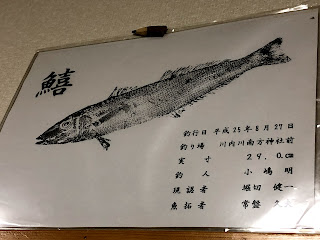 鱚
釣行日 平成25年8月27日
釣り場 川内川南方神社前
実寸 29.0cm
釣人 小嶋 明
現認者 堀切 健一
魚拓者 常盤